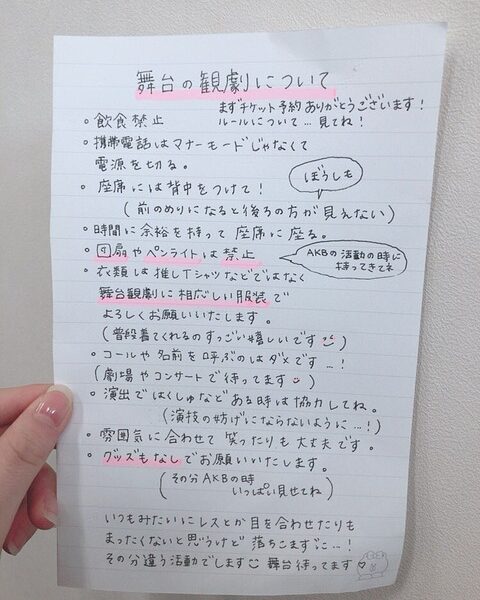 舞台の観劇について
まずチケット予約ありがとうございます!
ルールについて…見てね!
・飲食禁止
・携帯電話はマナーモードじゃなくて
電源を切る。
・座席には背中をつけて!
ぼうしも
(前のめりになると後ろの方が見えない)
・時間に余裕を持って座席に座る。
・団扇やペンライトは禁止
AKBの活動の時に
持ってきてネ
・衣類は推しTシャツなどではなく
舞台観劇に相応しい服装で
よろしくお願いいたします。
(普段着てくれるのすっごい嬉しいです)
・コールや名前を呼ぶのはダメです…!
(劇場やコンサートで待ってます)
・演出ではくしゅなどある時は協力してね。
(演技の妨げにならないように…!)
・雰囲気に合わせて笑ったりも大丈夫です。
・グッズもなしでお願いいたします。
(その分AKBの時
いっぱい見せてね)
いつもみたいにレスとか目を合わせたりも
まったくないと思うけど落ちこまずに…!
その分違う活動でします 舞台待ってます♡